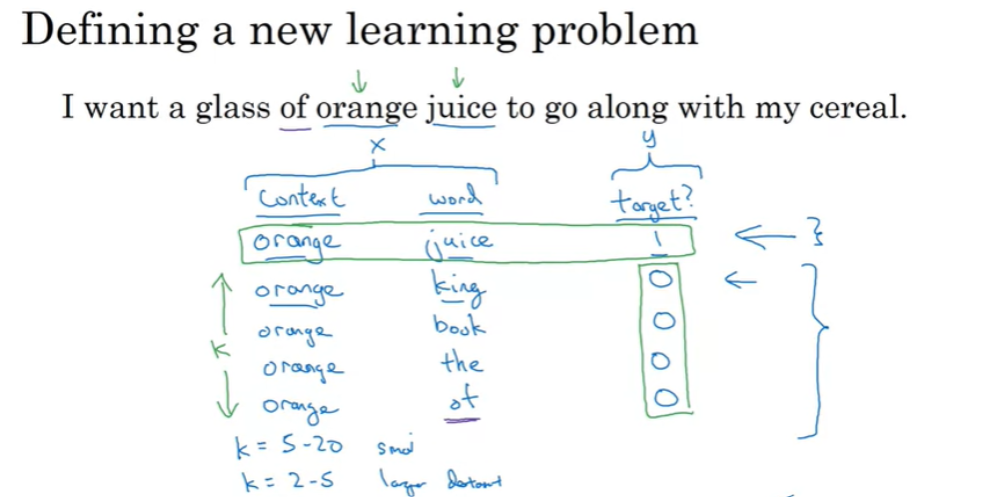 Defining a new learning problem
I want a glass of orange juice to go along with my cereal.
x y
Context word target?
orange juice 1
orange king 0
orange book 0
k
orange the 0
orange of 0
k = 5-20
k = 2-5 larger